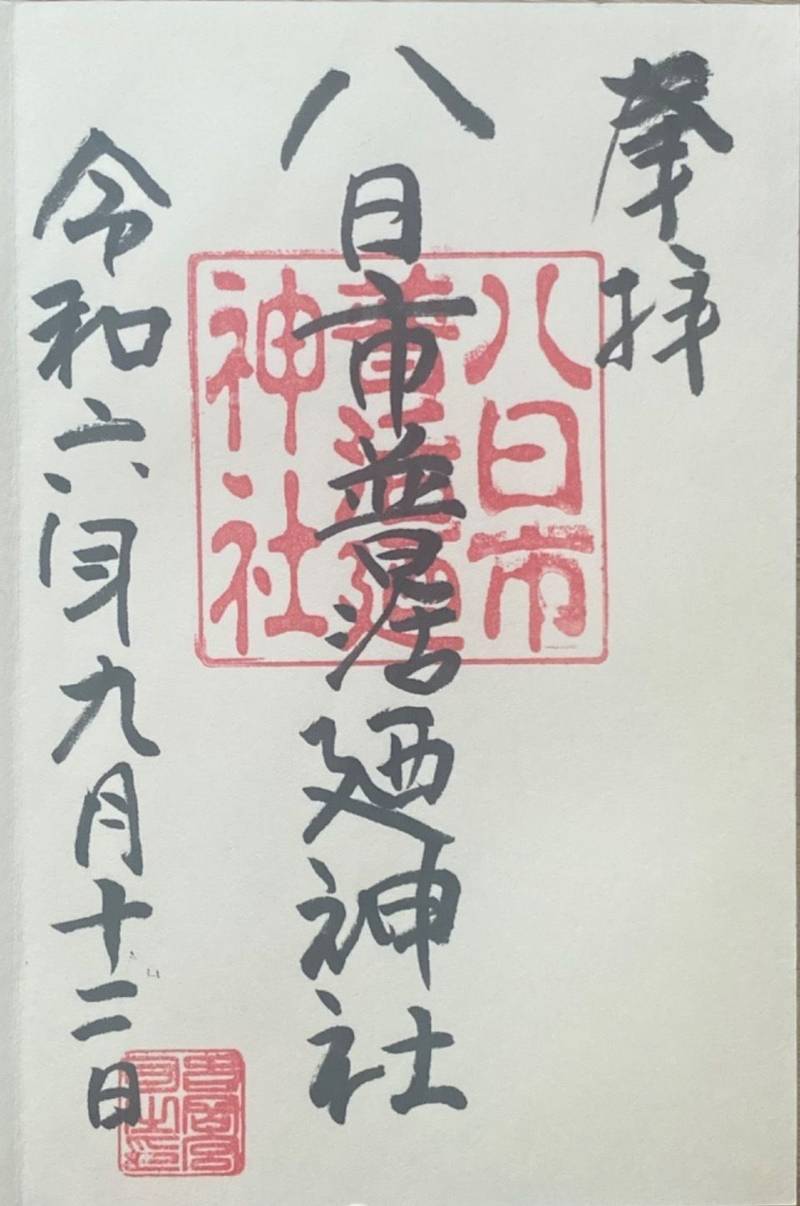 奉拝
八日市普活廼神社
令和六年九月十二日
八日市
普活廼
神社